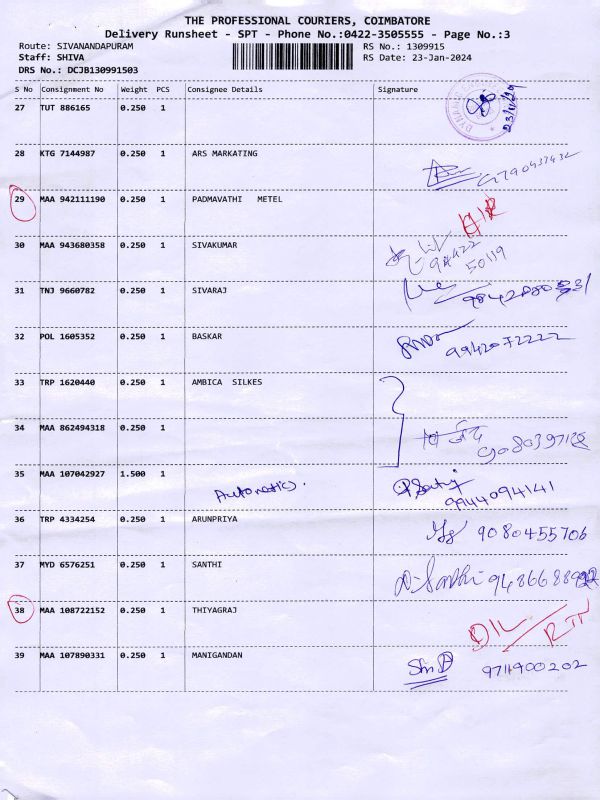 THE PROFESSIONAL COURIERS, COIMBATORE
Delivery Runsheet - SPT - Phone No.:0422-3505555 - Page No.:3
Route: SIVANANDAPURAM RS No.: 1309915
Staff: SHIVA RS Date: 23-Jan-2024
DRS No.: DCJB130991503
S No Consignment No Weight PCS Consignee Details Signature
27 TUT 886165 0.250 1
28 KTG 7144987 0.250 1 ARS MARKATING
29 MAA 942111190 0.250 1 PADMAVATHI METEL
30 MAA 943680358 0.250 1 SIVAKUMAR
94422
50119
31 TNJ 9660782 0.250 1 SIVARAJ
32 POL 1605352 0.250 1 BASKAR
9942072222
33 TRP 1620440 0.250 1 AMBICA SILKES
34 MAA 862494318 0.250 1
35 MAA 107042927 1.500 1 Automatics.
9944094141
36 TRP 4334254 0.250 1 ARUNPRIYA 9080455706
37 MYD 6576251 0.250 1 SANTHI D. Santhi
38 MAA 108722152 0.250 1 THIYAGRAJ D/L RTN
39 MAA 107890331 0.250 1 MANIGANDAN